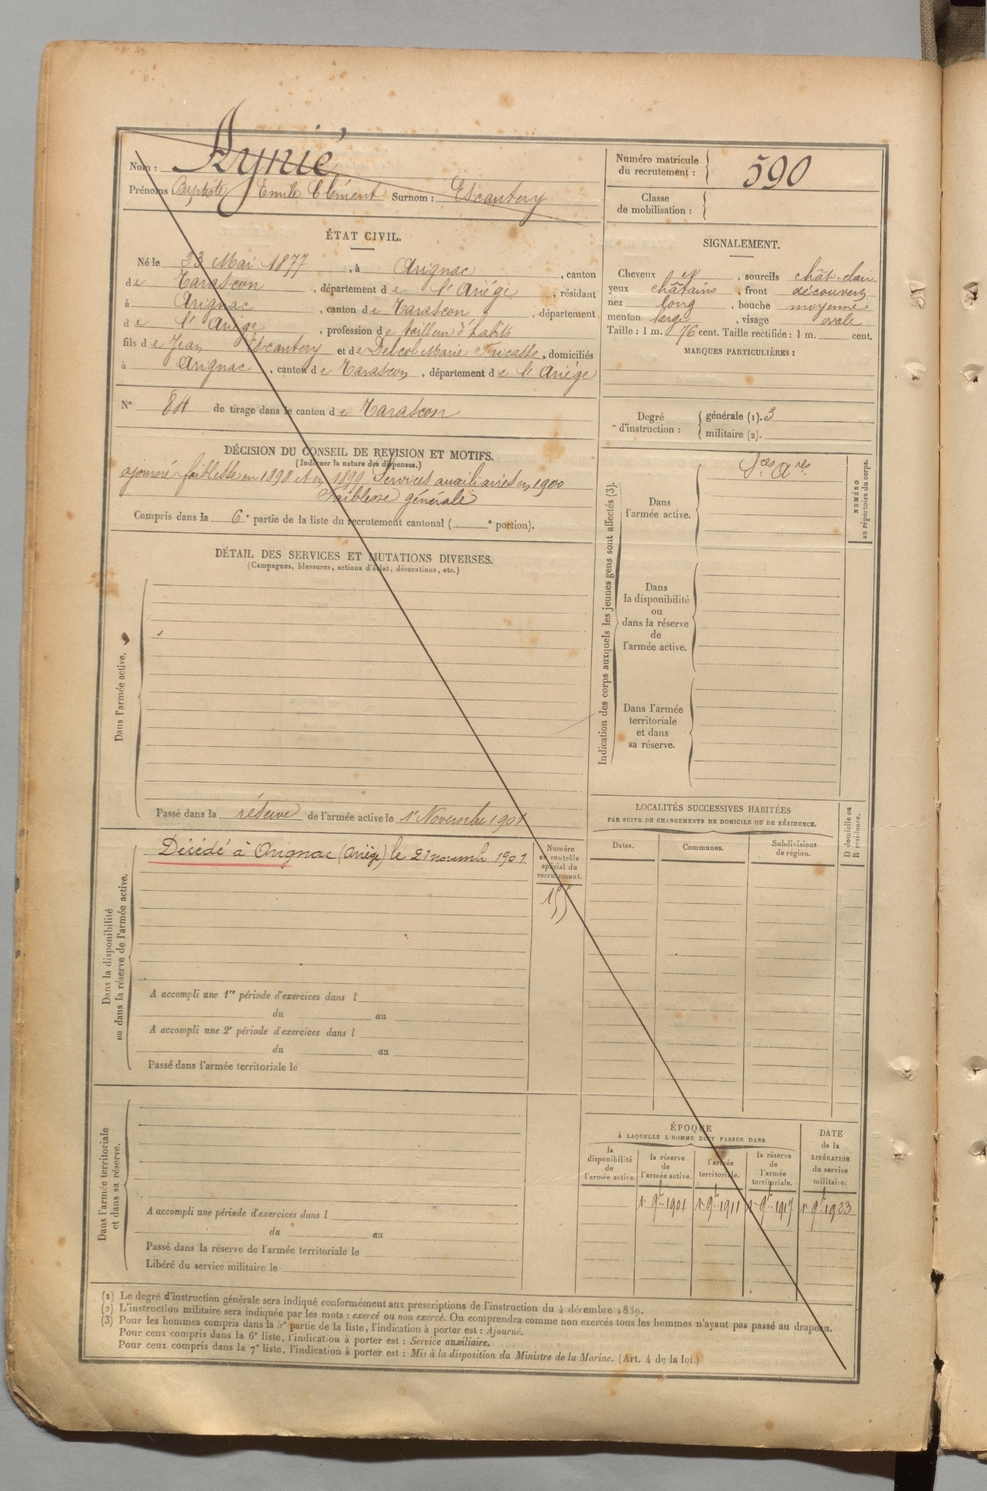 Nom : Aynié
Prénoms Baptiste Emile Clément Surnom : Escantery
Numéro matricule du recrutement : 590
Classe de mobilisation :
ÉTAT CIVIL.
Né le 23 Mai 1877, à Arignac, canton
de Tarascon, département de l'Ariège, résidant
à Arignac, canton de Tarascon, département
de l'Ariège, profession de tailleur d'habits
fils de Jean Escantery et de Delcol Marie Fricasse, domiciliés
à Arignac, canton de Tarascon, département de l'Ariège
N° 84 de tirage dans le canton de Tarascon
SIGNALEMENT.
Cheveux et, sourcils chât-clair
yeux châtains, front découvert
nez long, bouche moyenne
menton large, visage ovale
Taille : 1 m. 76 cent. Taille rectifiée : 1 m. cent.
MARQUES PARTICULIÈRES :
Degré d'instruction : générale (1). 3
militaire (2).
DÉCISION DU CONSEIL DE REVISION ET MOTIFS.
(Indiquer la nature des dispenses.)
ajourné faiblesse en 1898 et en 1899 Services auxiliaires en 1900
Faiblesse générale
Compris dans la 6e partie de la liste du recrutement cantonal ( e portion).
DÉTAIL DES SERVICES ET MUTATIONS DIVERSES.
(Campagnes, blessures, actions d'éclat, décorations, etc.)
Dans l'armée active.
Passé dans la réserve de l'armée active le 1er Novembre 1901
Indication des corps auxquels les jeunes gens sont affectés (3).
Dans l'armée active.
Sces Ares
NUMÉRO au répertoire du corps.
Dans la disponibilité ou dans la réserve de l'armée active.
Dans l'armée territoriale et dans sa réserve.
Dans la disponibilité ou dans la réserve de l'armée active.
Décédé à Arignac (Ariège) le 21 novembre 1901.
Numéro au contrôle spécial du recrutement.
155
A accompli une 1re période d'exercices dans l
du au
A accompli une 2e période d'exercices dans l
du au
Passé dans l'armée territoriale le
LOCALITÉS SUCCESSIVES HABITÉES
PAR SUITE DE CHANGEMENTS DE DOMICILE OU DE RÉSIDENCE.
Dates. Communes. Subdivisions de région.
D domicile ou R résidence.
Dans l'armée territoriale et dans sa réserve.
A accompli une période d'exercices dans l
du au
Passé dans la réserve de l'armée territoriale le
Libéré du service militaire le
ÉPOQUE
À LAQUELLE L'HOMME DOIT PASSER DANS
la disponibilité de l'armée active.
la réserve de l'armée active.
l'armée territoriale.
la réserve de l'armée territoriale.
DATE de la LIBÉRATION du service militaire.
1er 9bre 1901 1er 9bre 1911 1er 9bre 1917 1er 9bre 1923
(1) Le degré d'instruction générale sera indiqué conformément aux prescriptions de l'instruction du 4 décembre 1889.
(2) L'instruction militaire sera indiquée par les mots : exercé ou non exercé. On comprendra comme non exercés tous les hommes n'ayant pas passé au drapeau.
(3) Pour les hommes compris dans la 5e partie de la liste, l'indication à porter est : Ajourné.
Pour ceux compris dans la 6e liste, l'indication à porter est : Service auxiliaire.
Pour ceux compris dans la 7e liste, l'indication à porter est : Mis à la disposition du Ministre de la Marine. (Art. 4 de la loi.)